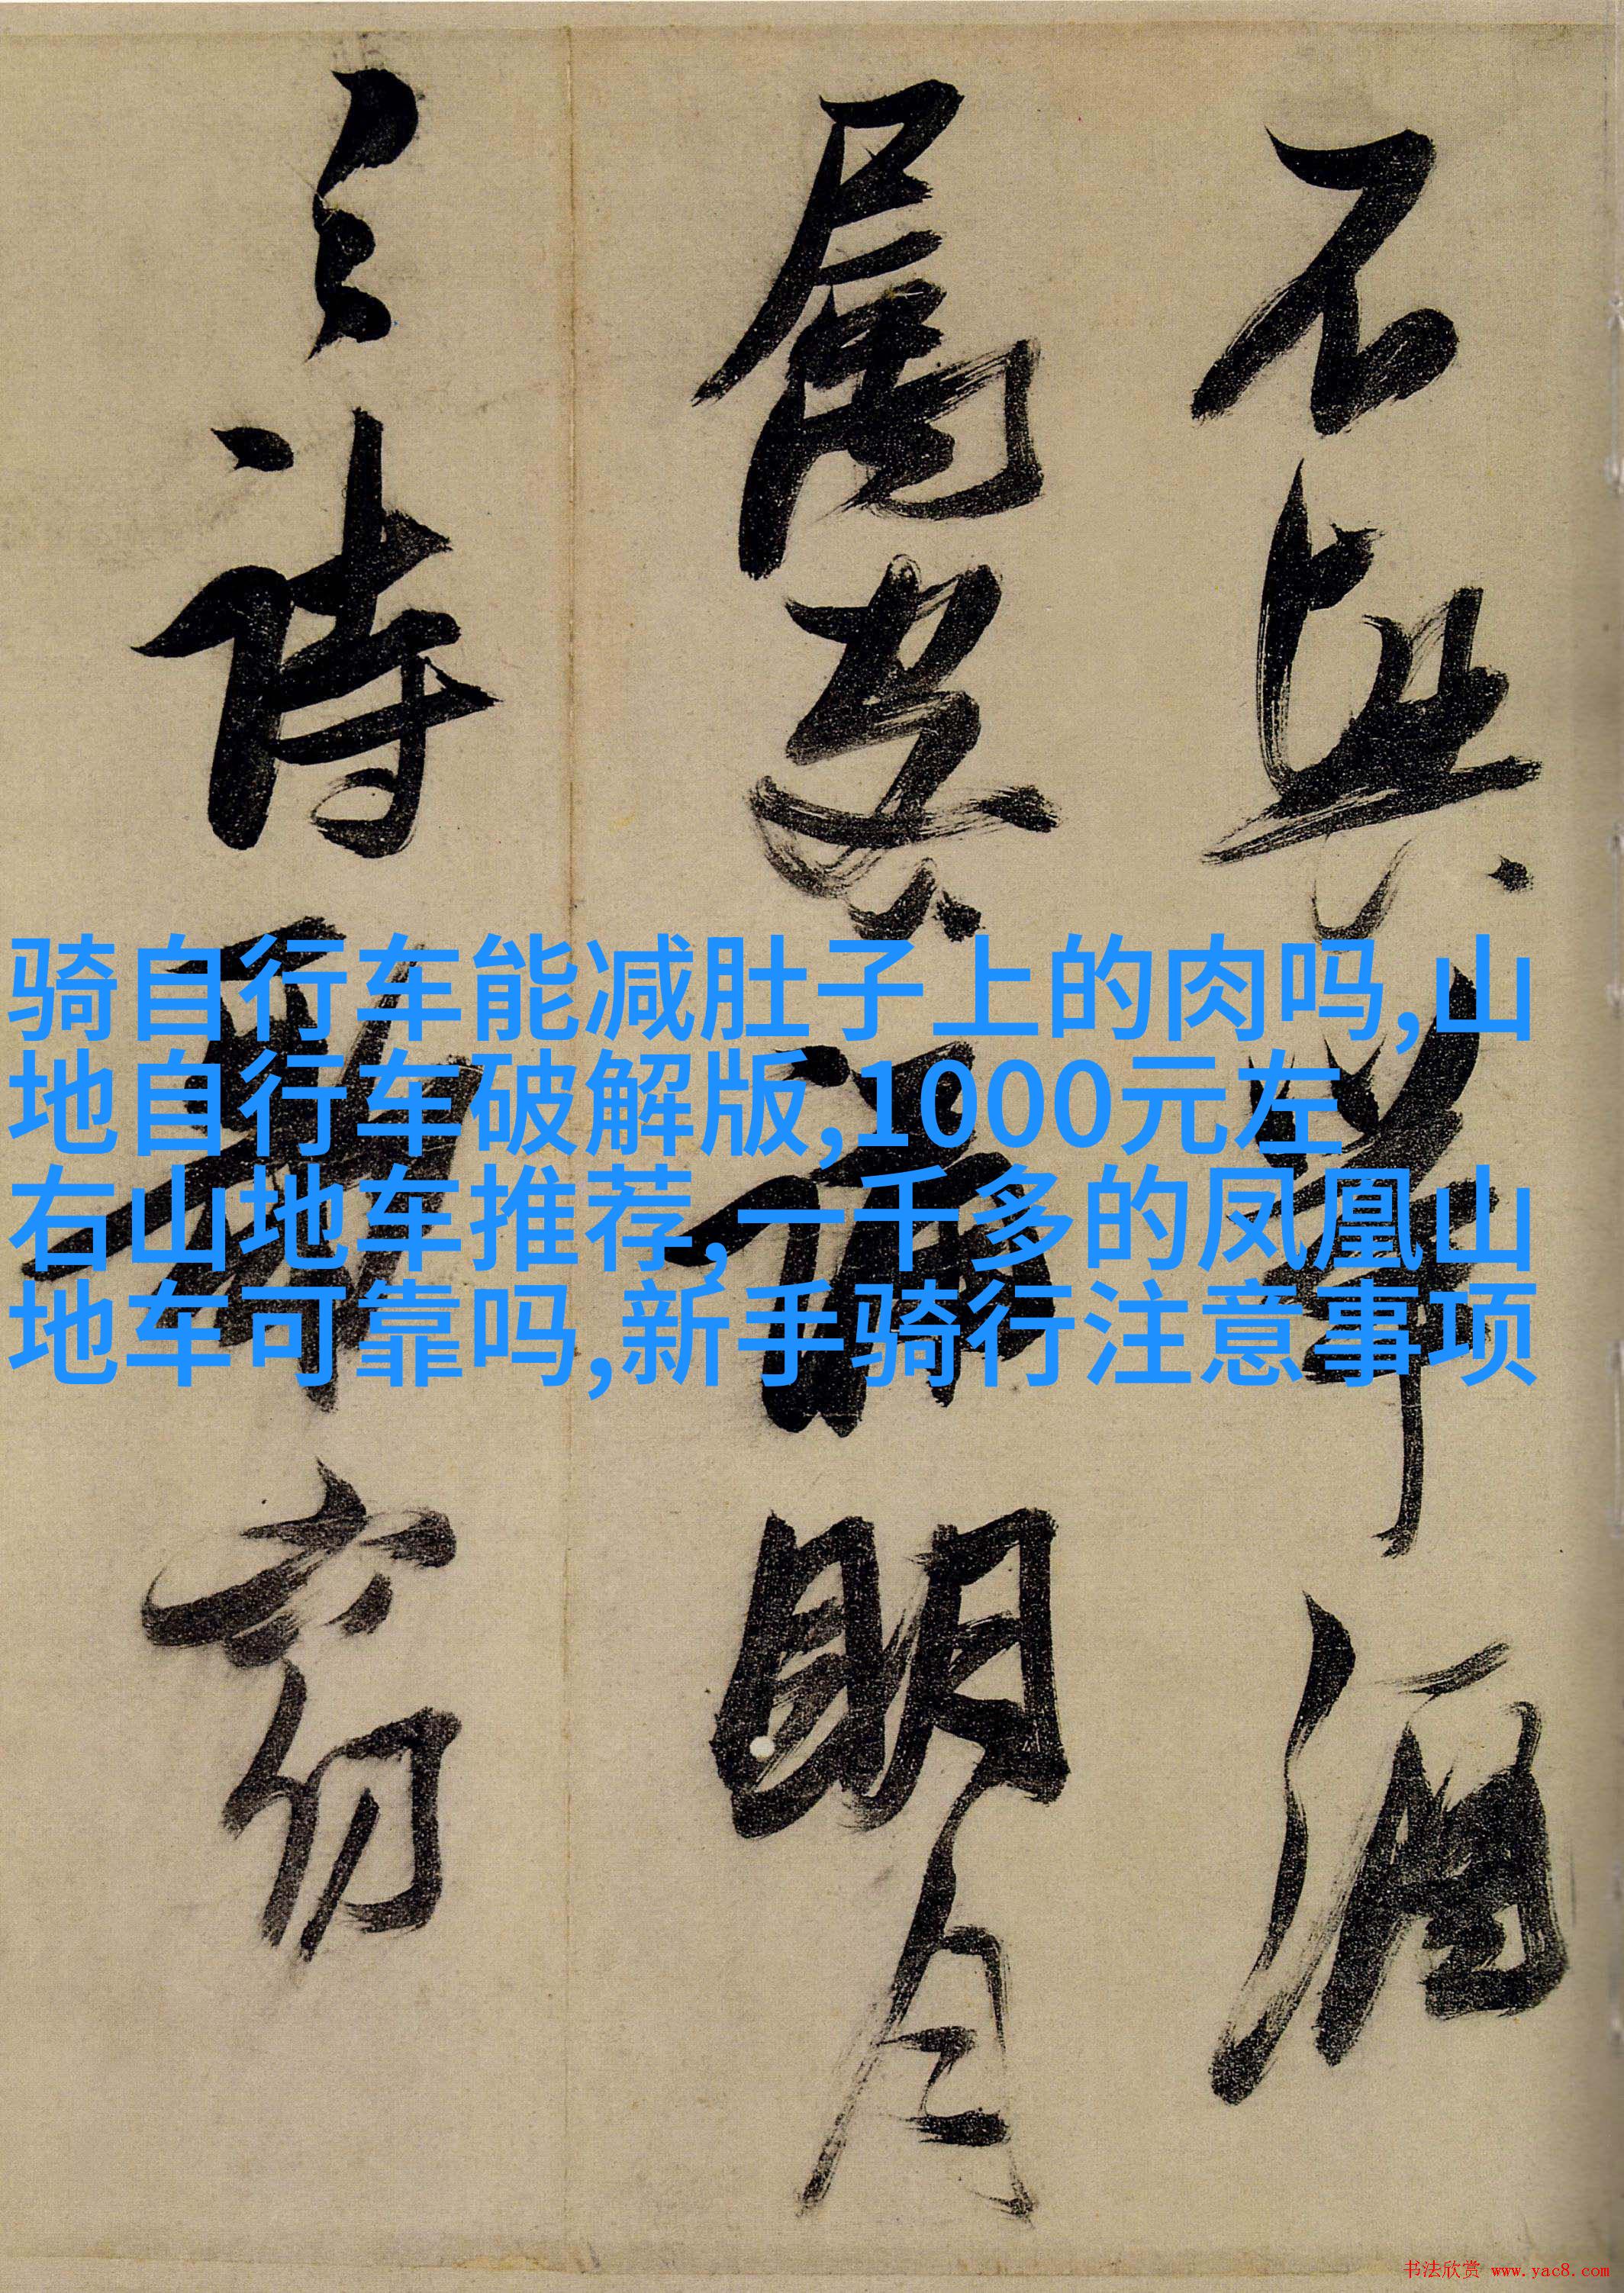 不興舉酒
屬客誦明月
之詩歌窈
骑自行车能减肚子上的肉吗,山
地自行车破解版,1000元左
右山地车推荐,一千多的凤凰山
地车可靠吗,新手骑行注意事项
书法欣赏 www.yac8.com